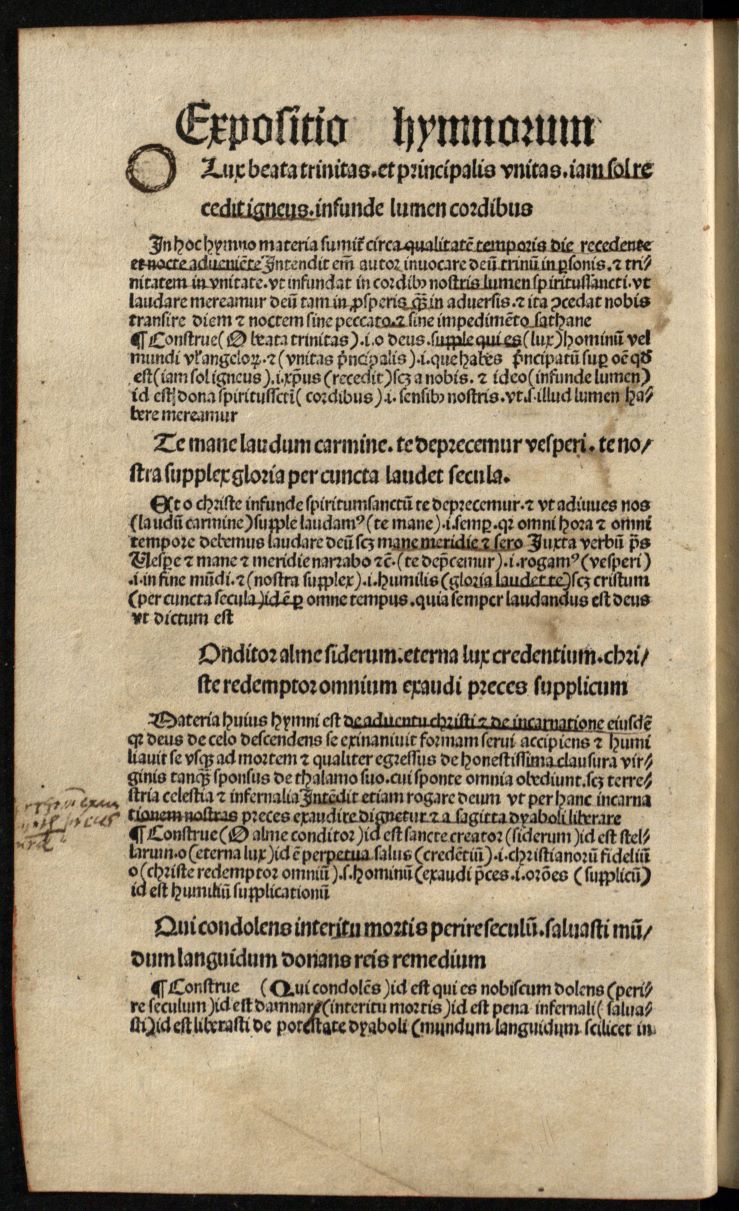 Expositio hymnorum
O Lux beata trinitas.et principalis vnitas.iam sol re
cedit igneus.infunde lumen cordibus
In hoc hymno materia sumit̃ circa qualitatẽ temporis die recedente
et nocte adueniẽte Intendit em̃ autor inuocare deũ trinũ in ꝑsonis.⁊ tri/
nitatem in vnitate.vt infundat in cordibꝰ nostris lumen spiritussancti.vt
laudare mereamur deũ tam in ꝓsperis q̃ꝫ in aduersis.⁊ ita ꝓcedat nobis
transire diem ⁊ noctem sine peccato.⁊ sine impedimẽto sathane
¶ Construe (O beata trinitas).i.o deus.supple qui es (lux) hominũ vel
mundi vl̃ angeloꝝ.⁊ (vnitas p̃ncipalis).i.que habes p̃ncipatũ suꝑ oẽ qđ
est (iam sol igneus).i.xp̃us (recedit) scꝫ a nobis. ⁊ ideo (infunde lumen)
id est dona spiritusscti (cordibus).i.sensibꝰ nostris.vt.s.illud lumen ha/
bere mereamur
Te mane laudum carmine.te deprecemur vesperi.te no/
stra supplex gloria per cuncta laudet secula.
Et o christe infunde spiritumsanctũ te deprecemur.⁊ vt adiuues nos
(laudũ carmine) supple laudamꝰ (te mane).i.semꝑ.qꝛ omni hora ⁊ omni
tempore debemus laudare deũ scꝫ mane meridie ⁊ sero Iuxta verbũ p̃s
Uesꝑe ⁊ mane ⁊ meridie narrabo ⁊c̃.(te dep̃cemur).i.rogamꝰ (vesperi)
.i.in fine mũdi.⁊ (nostra supplex).i.humilis (gloria laudet te) scꝫ cristum
(per cuncta secula) id ẽ ꝑ omne tempus.quia semper laudandus est deus
vt dictum est
Onditor alme siderum.eterna lux credentium.chri/
ste redemptor omnium exaudi preces supplicum
Materia huius hymni est de aduentu christi ⁊ de incarnatione eiusdẽ
qꝛ deus de celo descendens se exinaniuit formam serui accipiens ⁊ humi
liauit se vsqꝫ ad mortem ⁊ qualiter egressus de honestissima clausura vir/
ginis tanqꝫ sponsus de thalamo suo.cui sponte omnia obediunt.scꝫ terre/
stria celestia ⁊ infernalia Intẽdit etiam rogare deum vt per hanc incarna
tionem nostras preces exaudire dignetur.⁊ a sagitta dyaboli liberare
¶ Construe (O alme conditor) id est sancte creator (siderum) id est stel/
larum.o (eterna lux) id ẽ perpetua salus (credẽtiũ).i.christianorũ fideliũ
o (christe redemptor omniũ).s.hominũ (exaudi p̃ces.i.orões (supplicũ)
id est humiliũ supplicationũ
Qui condolens interitu mortis perire seculũ.saluasti mũ/
dum languidum donans reis remedium
¶ Construe (Qui condolẽs) id est qui es nobiscum dolens (peri/
re seculum) id est damnare (interitu mortis) id est pena infernali (salua/
sti) id est liberasti de potestate dyaboli (mundum languidum scilicet in